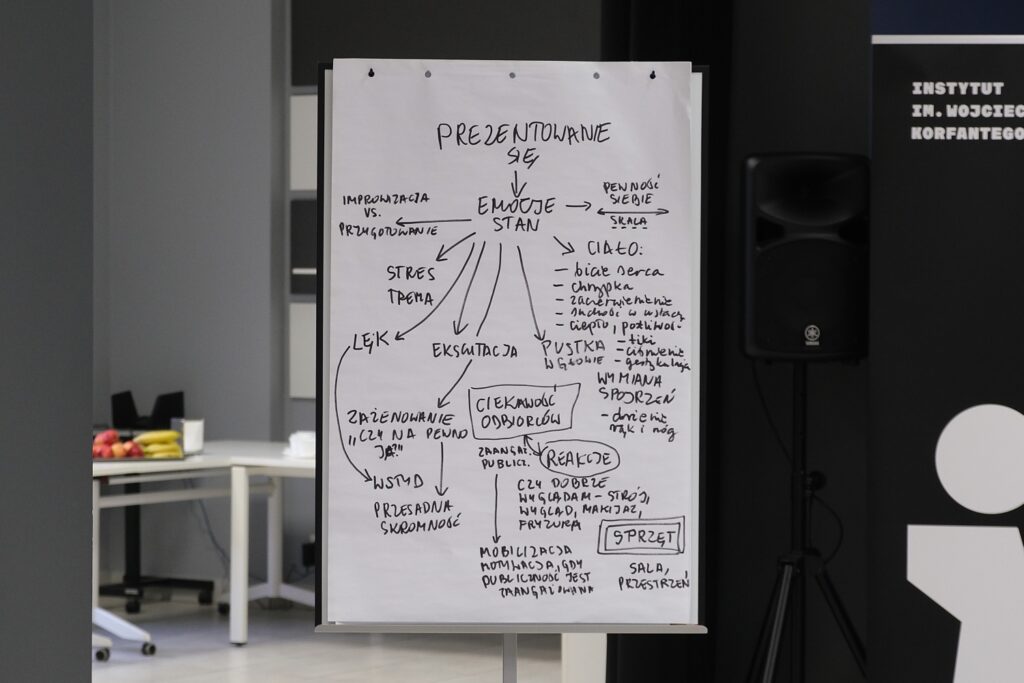 PREZENTOWANIE
SIĘ
EMOCJE
STAN
PEWNOŚĆ
SIEBIE
SKALA
IMPROWIZACJA
VS.
PRZYGOTOWANIE
STRES
TREMA
LĘK
EKSCYTACJA
CIAŁO:
- bicie serca
- chrypka
- zaczerwienienie
- suchość w ustach
- ciepło, potliwoś-
- tiki
- ciśnienie
- gestykulacja
PUSTKA
W GŁOWIE
WYMIANA
SPOJRZEŃ
- drżenie
rąk i nóg
ZAŻENOWANIE
"CZY NA PEWNO
JA?"
WSTYD
PRZESADNA
SKROMNOŚĆ
CIEKAWOŚĆ
ODBIORCÓW
ZAANGAŻ.
PUBLICZ.
REAKCJE
CZY DOBRZE
WYGLĄDAM - STRÓJ,
WYGLĄD, MAKIJAŻ,
FRYZURA
MOBILIZACJA
MOTYWACJA, GDY
PUBLICZNOŚĆ JEST
ZAANGAŻOWANA
SPRZĘT
SALA,
PRZESTRZEŃ
INSTYTUT
IM. WOJCIEC
KORFANTEGO